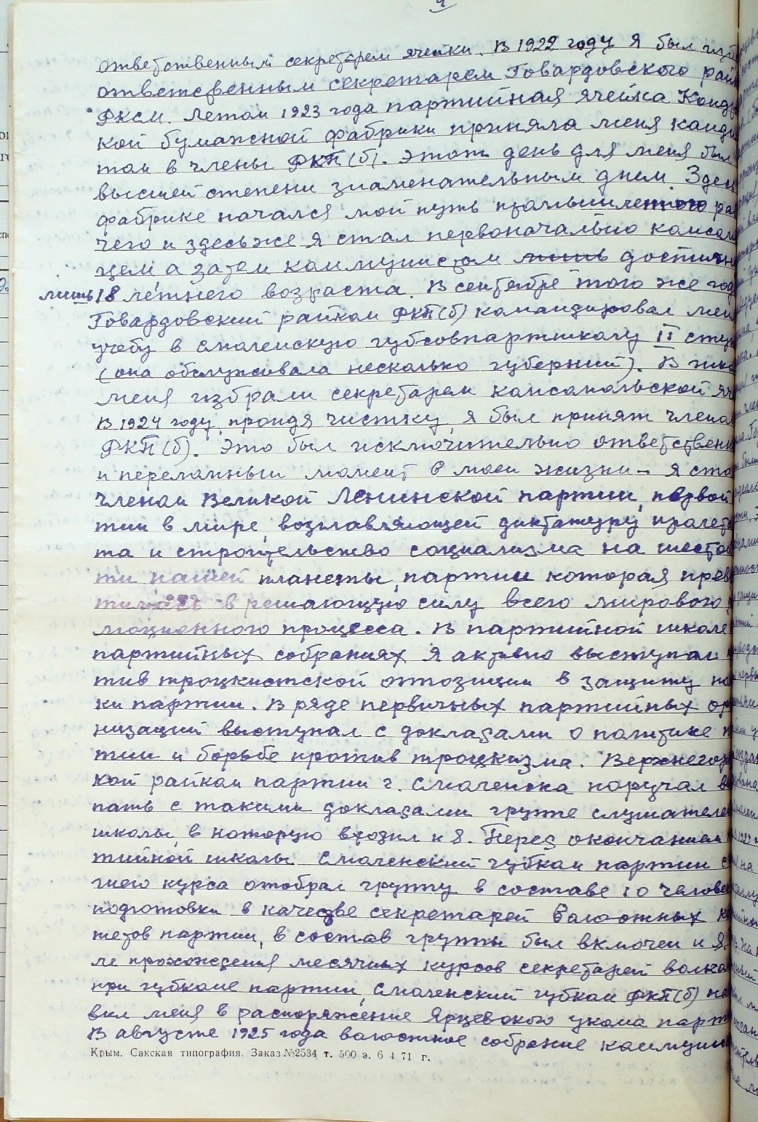 ответственным секретарем ячейки. В 1922 году я был
ответсвенным секретарем Говардовского рай
РКСМ. Летом 1923 года партийная ячейка Конд
кой бумажной фабрики приняла меня канди
том в члены РКП(б). Этот день для меня был
высшей степени знаменательным днем. Здес
фабрике начался мой путь промышленного ра
чего и здесь же я стал первоначально комсом
цем а затем коммунистом лишь достигн
лишь 18 летнего возраста. В сентябре того же год
Говардовский райком РКП(б) командировал мен
учебу в смоленскую губсовпартшколу II ступ
(она обслуживала несколько губерний). В шко
меня избрали секретарем комсомольской яч
В 1924 году, пройдя чистку, я был принят члена
РКП(б). Это был исключительно ответственн
и переломный момент в моей жизни — я ста
членом Великой Ленинской партии, первой
тии в мире, возглавляющей диктатуру пролет
та и строительство социализма на шесто
ти нашей планеты, партии которая прев
в решающую силу всего мирового
люционного процесса. В партийной школе
партийных собраниях я активно выступал
тив троцкистской оппозиции в защиту по
ки партии. В ряде первичных партийных ор
низаций выступал с докладами о политике п
тии и борьбе против троцкизма. Верхнегор
кой райком партии г. Смоленска поручал в
пать с такими докладами группе слушателе
школы, в которую входил и я. Через окончания
тийной школы Смоленский губком партии с
шего курса отобрал группу в составе 10 челове
подготовки в качестве секретарей волостных к
тетов партии, в состав группы был включен и я.
ле прохождения месячных курсов секретарей волко
при губкоме партии, Смоленский губком РКП(б) на
вил меня в распоряжение Ярцевского укома парт
В августе 1925 года волостное собрание коммуни
Крым. Сакская типография. Заказ №2534 т. 500 э. 6 4 71 г.